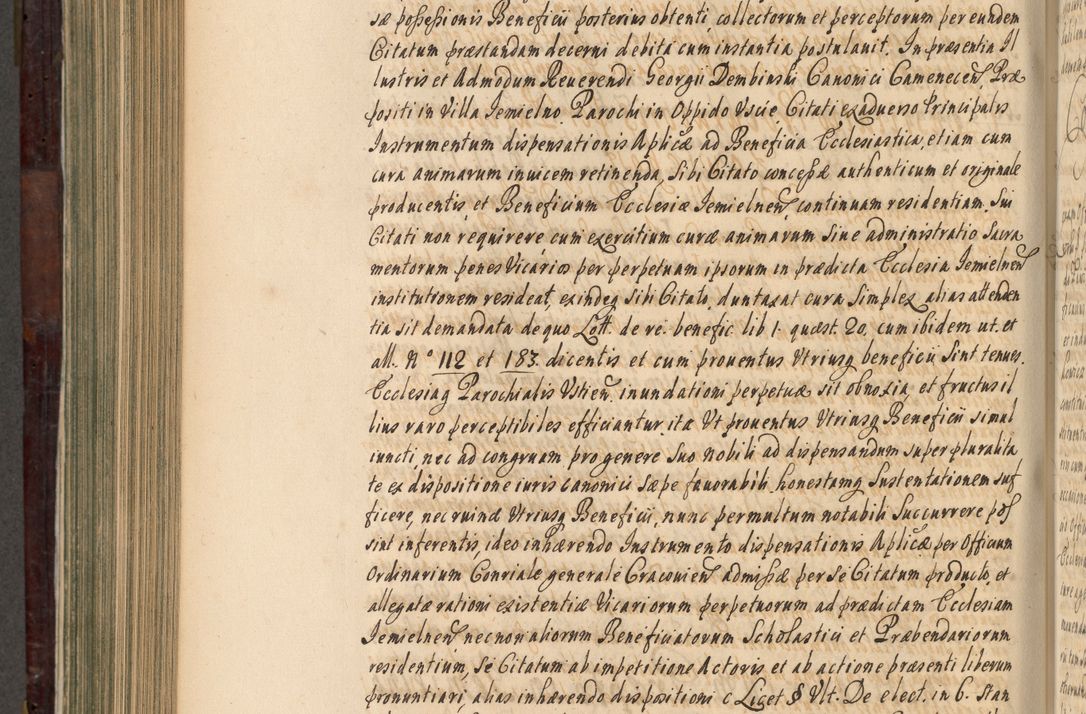 sæ possessionis Beneficii posterius obtenti, collectorum et perceptorum per eundem
Citatum præstandam decerni debita cum instantia postulavit. In præsentia Il
lustris et Admodum Reuerendi Georgii Dembinski Canonici Camenecen, Præ
positi in Villa Jemielno, Parochi in Oppido Vscie, Citati ex aduerso Principalis
Instrumentum dispensationis Aplicæ ad Beneficia Ecclesiastica, etiam cum
cura animarum inuicem retinenda, Sibi Citato concessæ authenticum et originale
producentis, et Beneficium Ecclesiæ Jemielnen, continuam residentiam Sui
Citati non requirere cum exercitium curæ animarum Siue administratio Sacra
mentorum penes Vicarios per perpetuam ipsorum in prædicta Ecclesia Jemielnen
institutionem resideat, exindeq Sibi Citato, duntaxat cura Simplex alias attenden
tia sit demandata de quo Lott. de re. benefic. lib 1. quæst. 20. cum ibidem ut. et
all. No 112 et 183. dicentis et cum prouentus Vtriusq beneficii Sint tenues.
Ecclesiaq Parochialis Vstien. inundationi perpetuæ sit obnoxia, et fructus il
lius raro perceptibiles efficiantur, ita Vt prouentus Vtriusq Beneficii simul
iuncti, nec ad congruam pro genere Suo nobili ad dispensandum super pluralita
te ex dispositione iuris canonici Sæpe fauorabili, honestamq Sustentationem suf
ficere, nec ruinæ Vtriusq Beneficii, nunc permultum notabili Succurrere pos
sint inferentis, ideo inhærendo Instrumento dispensationis Aplicæ per Officium
Ordinarium Conriale generale Cracouien admissæ per Se Citatum producto, et
allegatæ rationi existentiæ Vicariorum perpetuorum ad prædictam Ecclesiam
Jemielnen, necnon aliorum Beneficiatorum Scholastici et Præbendariorum
residentium, Se Citatum ab impetitione Actoris et ab actione præsenti liberum
pronuntiari, alias inhærendo dispositioni c Licet § Vlt. De elect. in 6. Stan